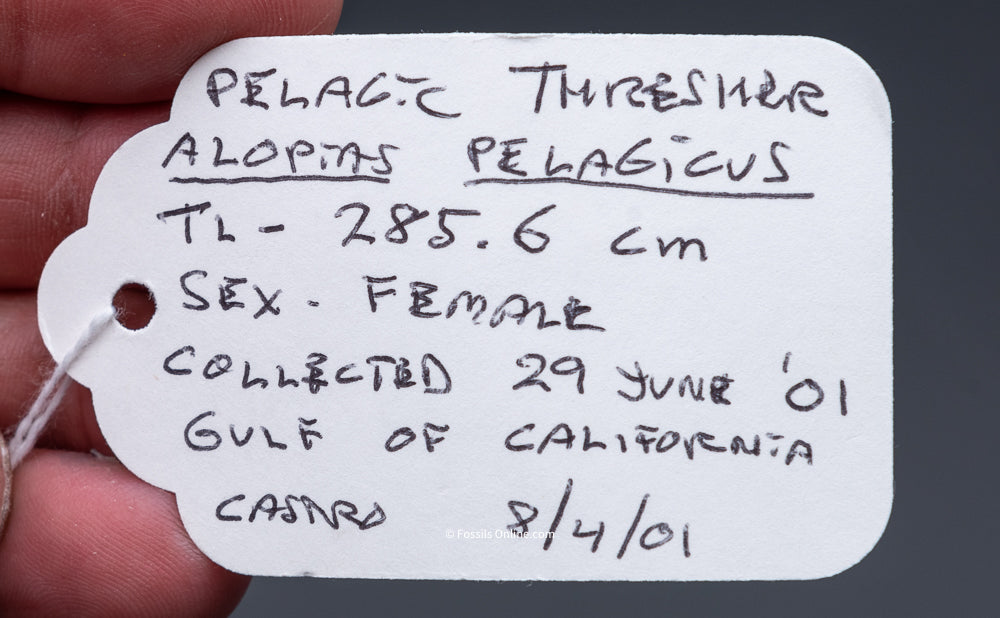 PELAGIC THRESHER
ALOPIAS PELAGICUS
TL - 285.6 cm
SEX - FEMALE
COLLECTED 29 JUNE '01
GULF OF CALIFORNIA
CASTRO 8/4/01
© Fossils Online.com